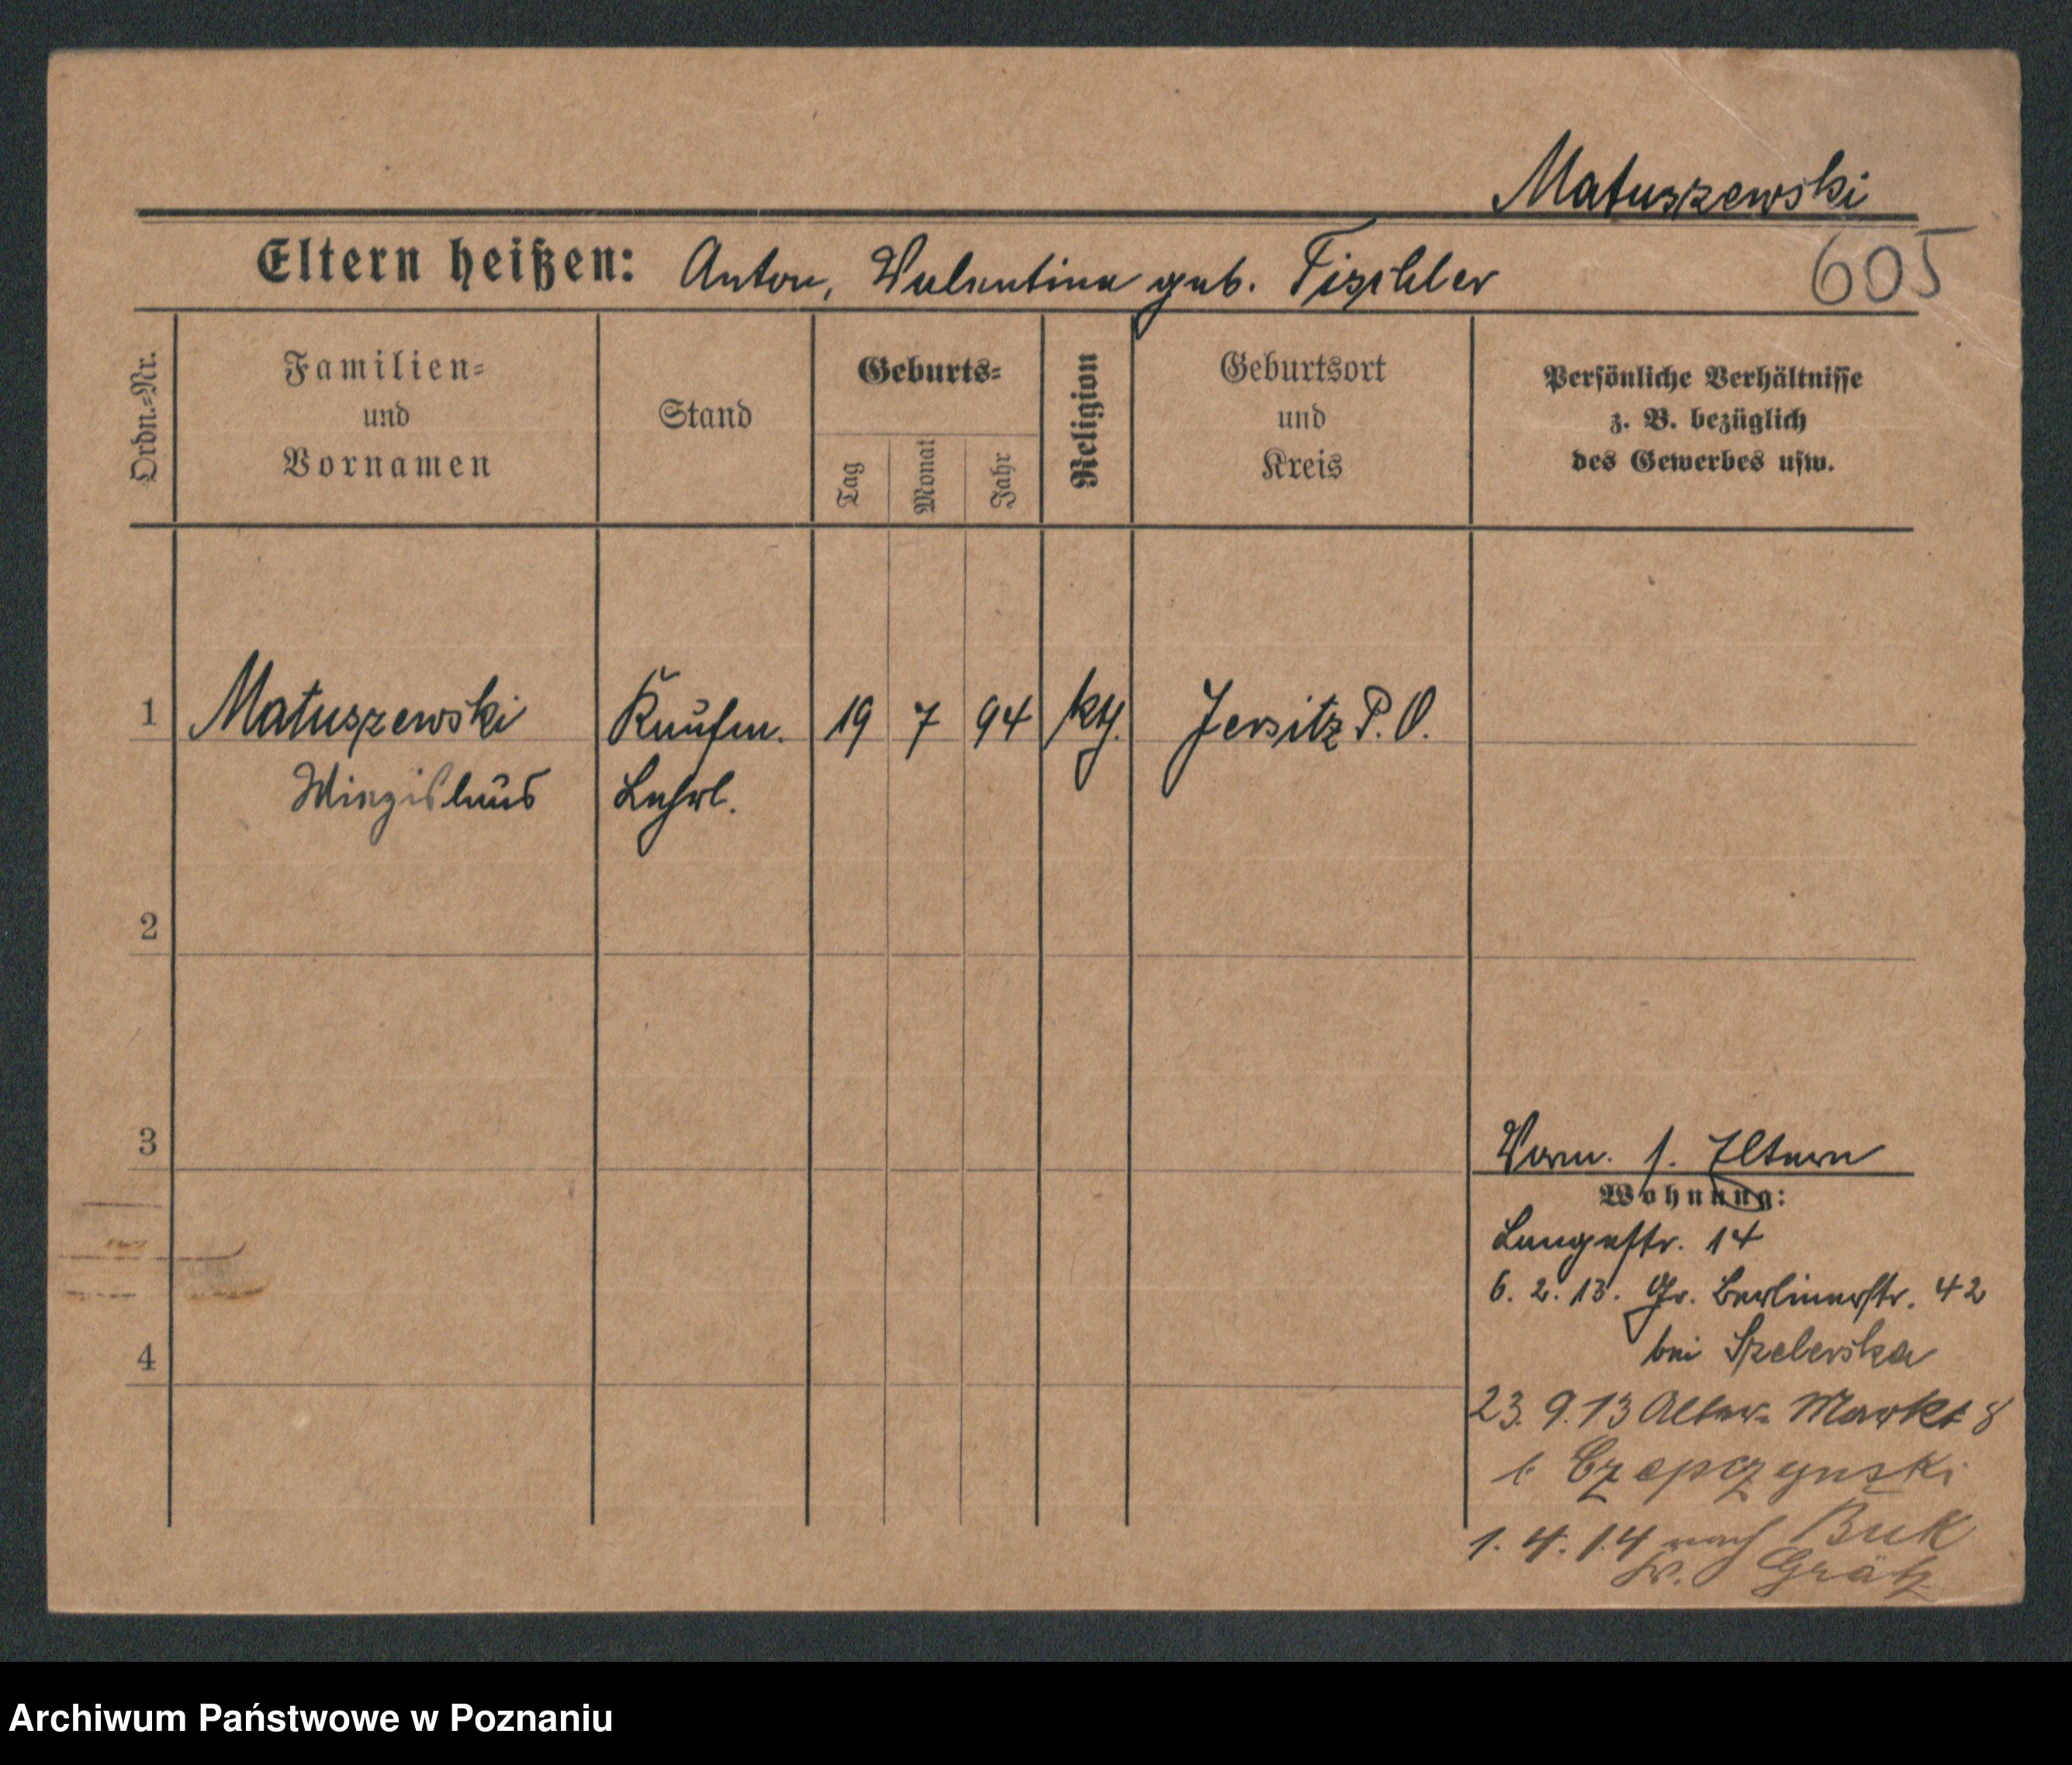 Matuszewski
605
Eltern heißen: Anton, Valentina geb. Tischler
Ordn.=Nr.
Familien=
und
Vornamen
Stand
Geburts=
Tag
Monat
Jahr
Religion
Geburtsort
und
Kreis
Persönliche Verhältnisse
z. B. bezüglich
des Gewerbes usw.
1 Matuszewski Kaufm. 19 7 94 kth. Jersitz P. O.
Lehrl.
2
3
Vorm. s. Eltern
Wohnung:
Langestr. 14
6. 2. 13. Gr. Berlinerstr. 42
4
bei
23. 9. 13 Alter Markt 8
b Czepczynski
1. 4. 14 nach Buk
Kr. Grätz
Archiwum Państwowe w Poznaniu